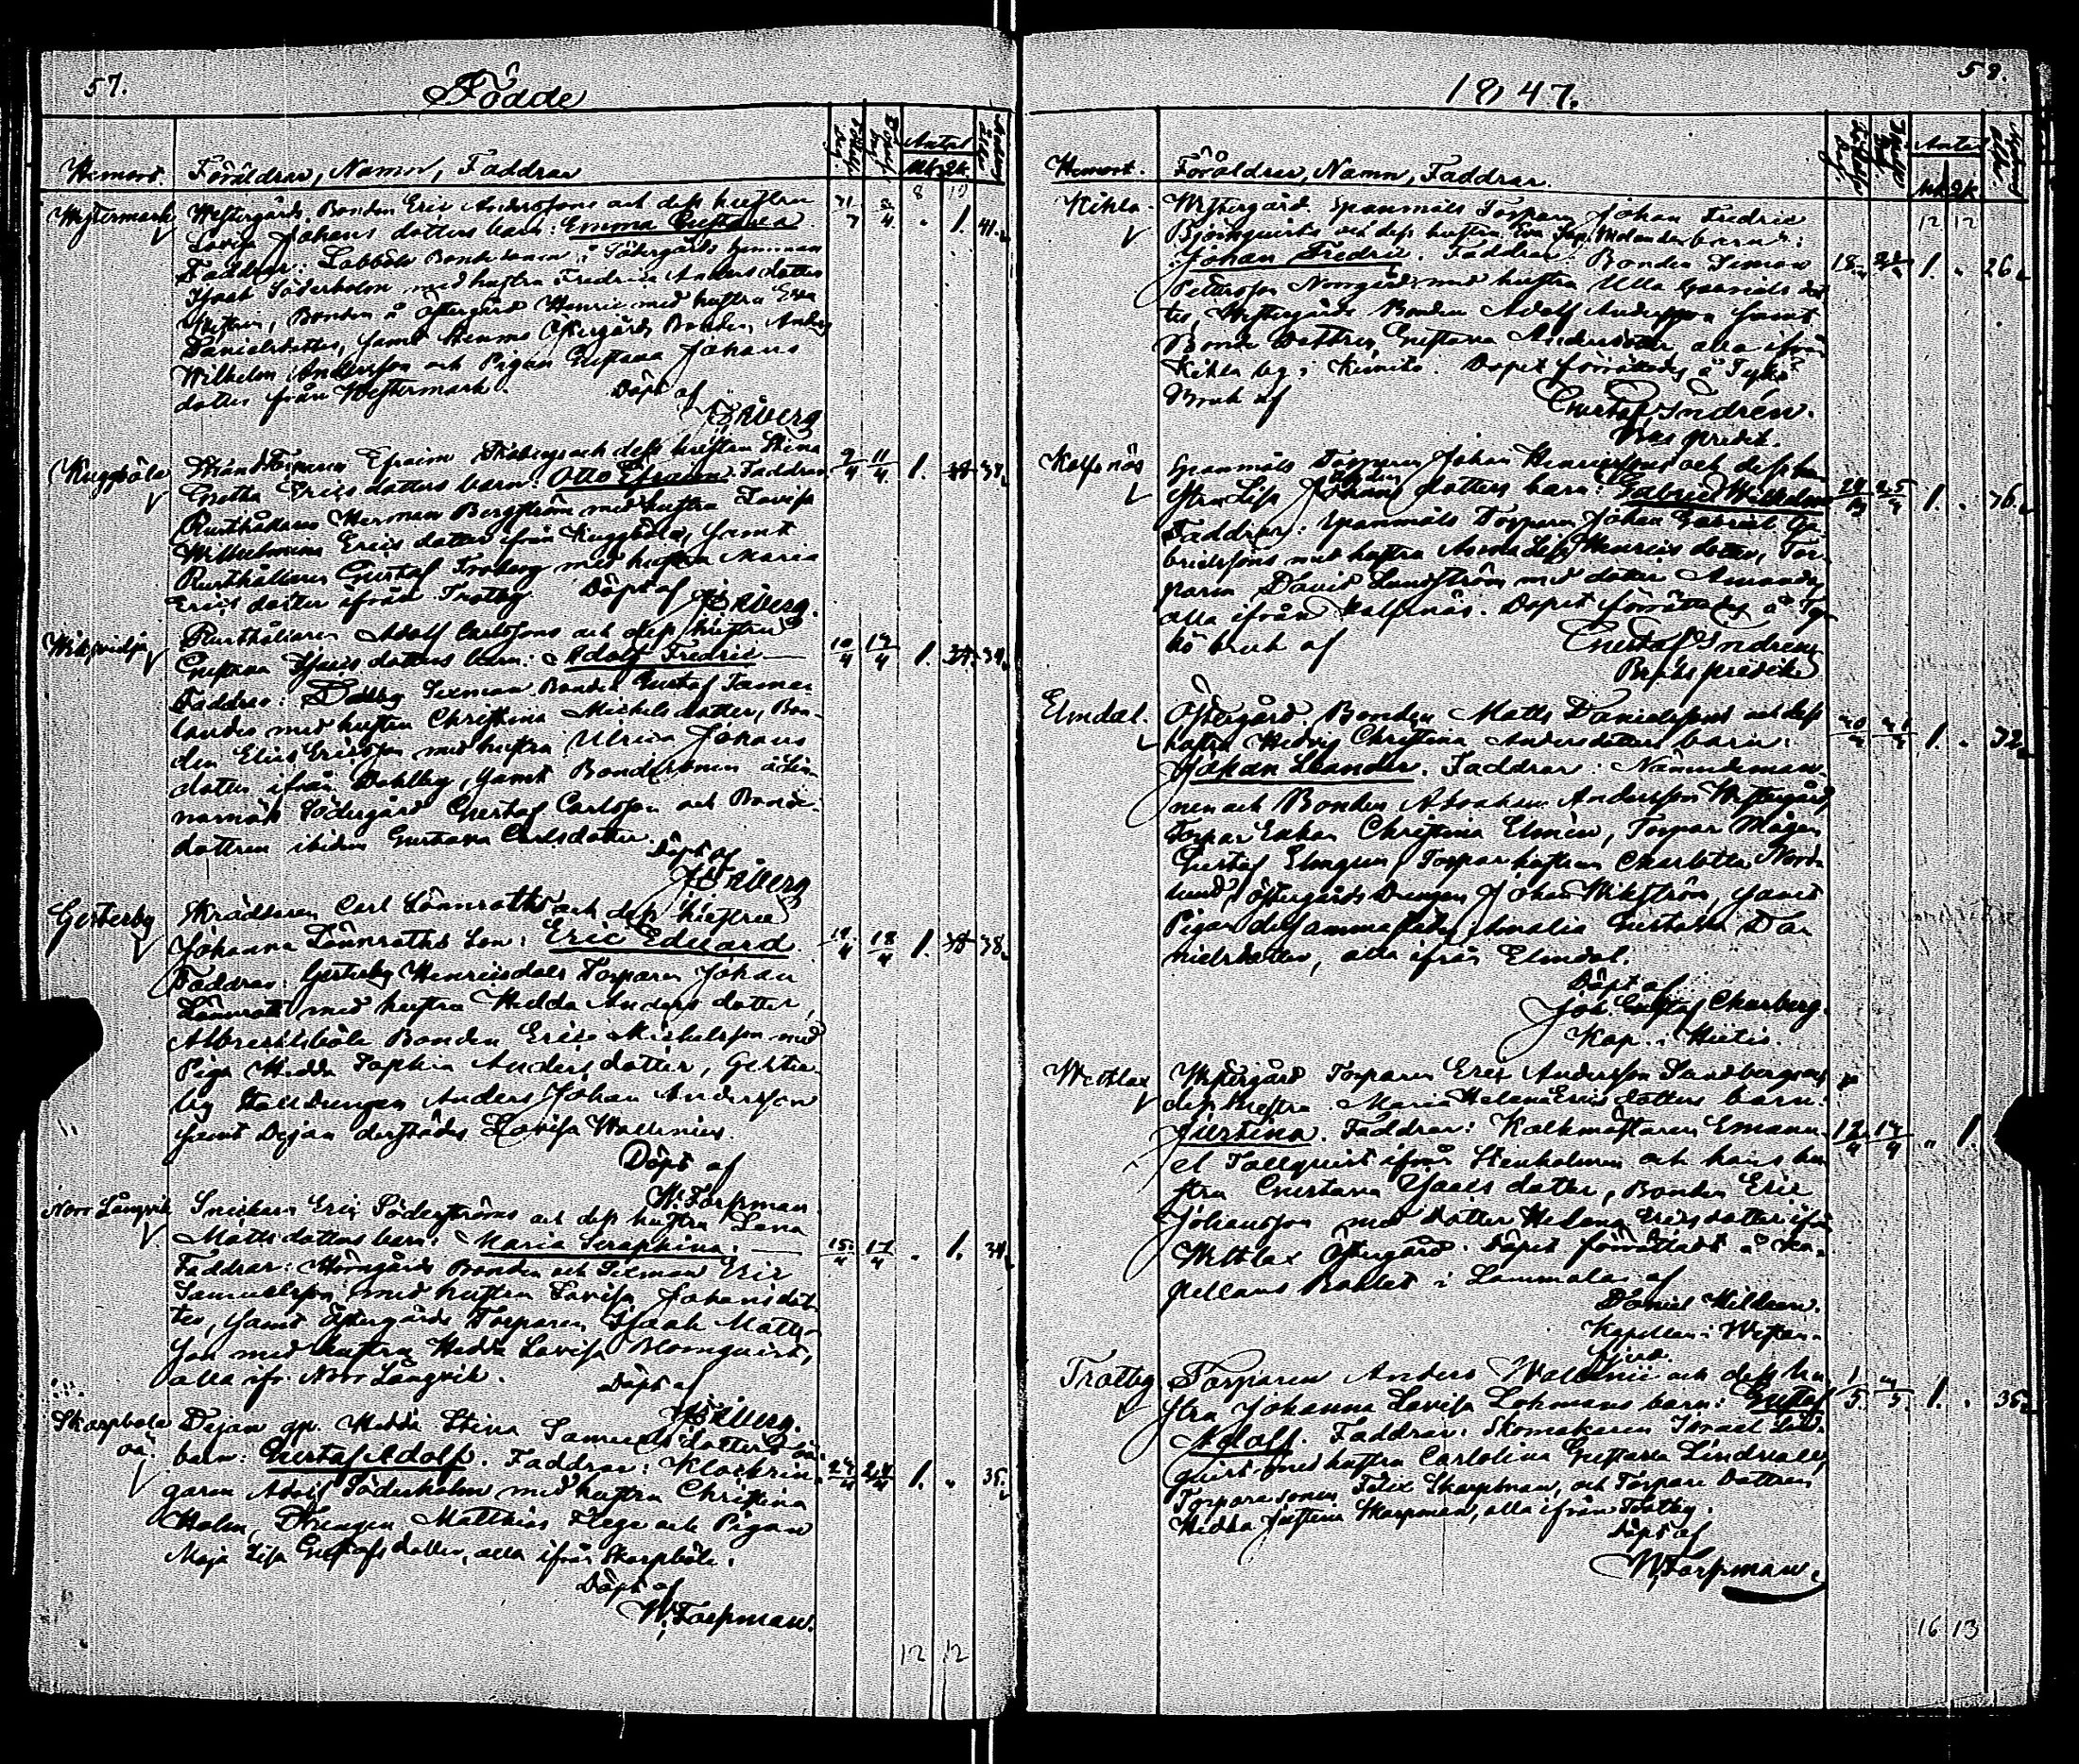 57.
Födde
Hemort. Föräldrar, Namn, Faddrar
Antal
Mk. Qk.
8 10
Westermark Westergårds Bonden Eric Anderssons och dess hustru
Lovisa Johans dotters barn: Emma Gustava 4 " 1. 41.
Faddrar: Labböle Bondesonen i Södergårds hemman
Isaak Söderholm med hustru Fredrica Anders dotter
Bonden å Östergård Henric med hustru Eva
Danielsdotter, samt Östergårds Bonden Anders
Wilhelm Andersson och Pigan Gustava Johans
dotter från Westermark. Döpt af
Kuggböle Efraim och dess hustru Stina
Greta Erics dotters barn: Otto Efraim. Faddrar 2/4 11/4 1.
Rusthållaren Herman Bergström med hustru Lovisa
Wilhelmina Erics dotter ifrån Kuggböle, samt
Rusthållaren Gustaf Froberg med hustru Maria
Erics dotter ifrån Trotby Döpt af
Rusthållaren Adolf Carlssons och dess hustru
Gustava Isaks dotters barn: Adolf Fredric 10/4 17/4 1.
Faddrar: Dahlby Sexman Bonden Gustaf
med hustru Christina Michels dotter, Bon-
den Elias Ericsson med hustru Ulrica Johans
dotter ifrån Dahlby, samt Bondesonen
Södergård Gustaf Carlsson och Bond-
dottren ibidem Gustava Carlsdotter.
Döpt af
Gesterby Skräddaren Carl Lönnroths och dess hustru
Johanna Lönnroths Son: Eric Eduard. 18/4 1. 38.
Faddrar: Gesterby Henricsdals Torparen Johan
Lönnroth med hustru Hedda Anders dotter,
Albrektsböle Bonden Eric Michelsson med
Piga Hedda Sophia Anders dotter, Gester-
by Stalldrengen Anders Johan Andersson
samt Dejan derstädes Lovisa Wallenius.
Döpt af
W. Torpman.
Norr Långvik Snickaren Eric Söderströms och dess hustru Lena
Matts dotters barn: Maria Seraphina. 15/4 17/4 " 1. 34.
Faddrar: Norrgårds Bonden och Sexman Eric
Samuelsson med hustru Lovisa Johans dot-
ter, samt Östergårds Torparen Isaak Matts-
son med hustru Hedda Lovisa Blomquist,
alla ifr. Norr Långvik.
Döpt af
Skarpböle Dejan Hedda Stina Samuels dotters oä
oä barn: Gustaf Adolf. Faddrar: Klockrin- 1. " 35.
garen Adolf Söderholm med hustru Christina
Holm, Drengen Matthias Flege och Pigan
Maja Lisa Gustafs dotter, alla ifrån Skarpböle.
Döpt af
W. Torpman.
12 12
58.
1847.
Hemort. Föräldrar, Namn, Faddrar.
Antal
Mk Qk
12 12
Kihla Westergård. Spanmåls Torparen Johan Fredric
Björnquists och dess hustru Eva Molander barn:
Johan Fredric. Faddrar: Bonden Simon 18/4 1. " 26.
Petersson Norrgård med hustru Ulla Gabriels dot-
ter, Westergårds Bonden Adolf Andersson samt
Bond Dottren Gustava Andersdotter alla ifrån
Kihla by i Kimito. Dopet förrättades å Tykö
Bruk af Gustaf Indrén.
Bruks predik.
Kalfnäs Spanmåls Torparen Johan Henricssons och dess hu-
stru Lisa Johans dotters barn: Gabriel Wilhelm 24/4 25/4 1. " 36.
Faddrar: Spanmåls Torparen Johan Gabriel Ga-
brielssons med hustru Anna Lisa Henrics dotter, Tor-
paren David Lundström med dotter Amanda
alla ifrån Kalfnäs. Dopet förrättades å Ty-
kö bruk af Gustaf Indrén
Bruks predik.
Elmdal. Östergård. Bonden Matts Danielssons och dess
hustru Hedvig Christina Andersdotters barn: 1. " 32.
Johan Leander. Faddrar: Nämndeman-
nen och Bonden Abraham Andersson Westergård,
Torpar Enkan Christina Elmén, Torpar Mågen
Gustaf Elmgren, Torpar hustrun Charlotta Nord-
lund, Östergårds Drengen Johan Wikström, samt
Pigan dersammastädes Amalia Gustava Da-
nielsdotter, alla ifrån Elmdal.
Döpt af
Joh. Gustaf Churberg.
Kap. i Hiitis.
Westlax Westergård Torparen Eric Andersson Sandbergs och
dess hustru Maria Helena Erics dotters barn:
Justina. Faddrar: Kalkmästaren Emanu- 12/4 17/4 " 1.
el Tallquist ifrån Stenholmen och hans hu-
stru Gustava Isaks dotter, Bonden Eric
Johansson med dotter Helena Erics dotter ifrån
Westlax Östergård. Dopet förrättadt å Ka-
pellans Bolet i Lammala af
Daniel Hildeen.
Kapellan i Westan-
fjerd.
Trotby Torparen Anders Wallenii och dess hu- 1/5
stru Johanna Lovisa Lohmans barn: Gustaf 1. " 35.
Adolf. Faddrar: Skomakaren Israel Lind-
quist med hustru Carlolina Gustava Lindvall,
Torpare sonen Felix Skarpman, och Torpare Dottren
Hedda Justina Skarpman, alla ifrån Trotby.
Döpt af
W. Torpman.
16 13